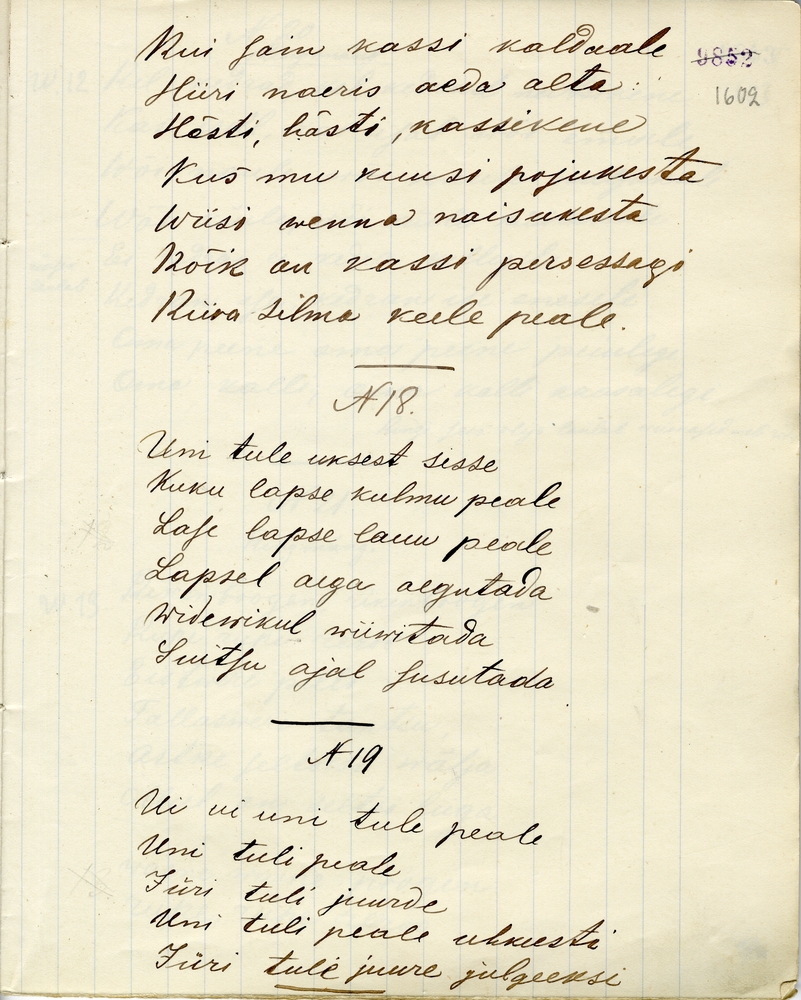 Kui sain kassi kaldaale
9852
Hiiri naeris aeda alta:
1602
Hästi, hästi, kassikene
Kus mu kuusi pojukesta
Wiisi wenna naisukesta
Kõik on kassi persessagi
Kiiwa silma keele peale.
N 18.
Uni tule uksest sisse
Kuku lapse kulmu peale
Lase lapse lauu peale
Lapsel aega aegutada
Widewikul wiiwitada
Suitsu ajal susutada
N 19
Ui ui uni tule peale
Uni tuli peale
Jüri tuli juurde
Uni tuli peale uhkesti
Jüri tuli juure julgeeksi